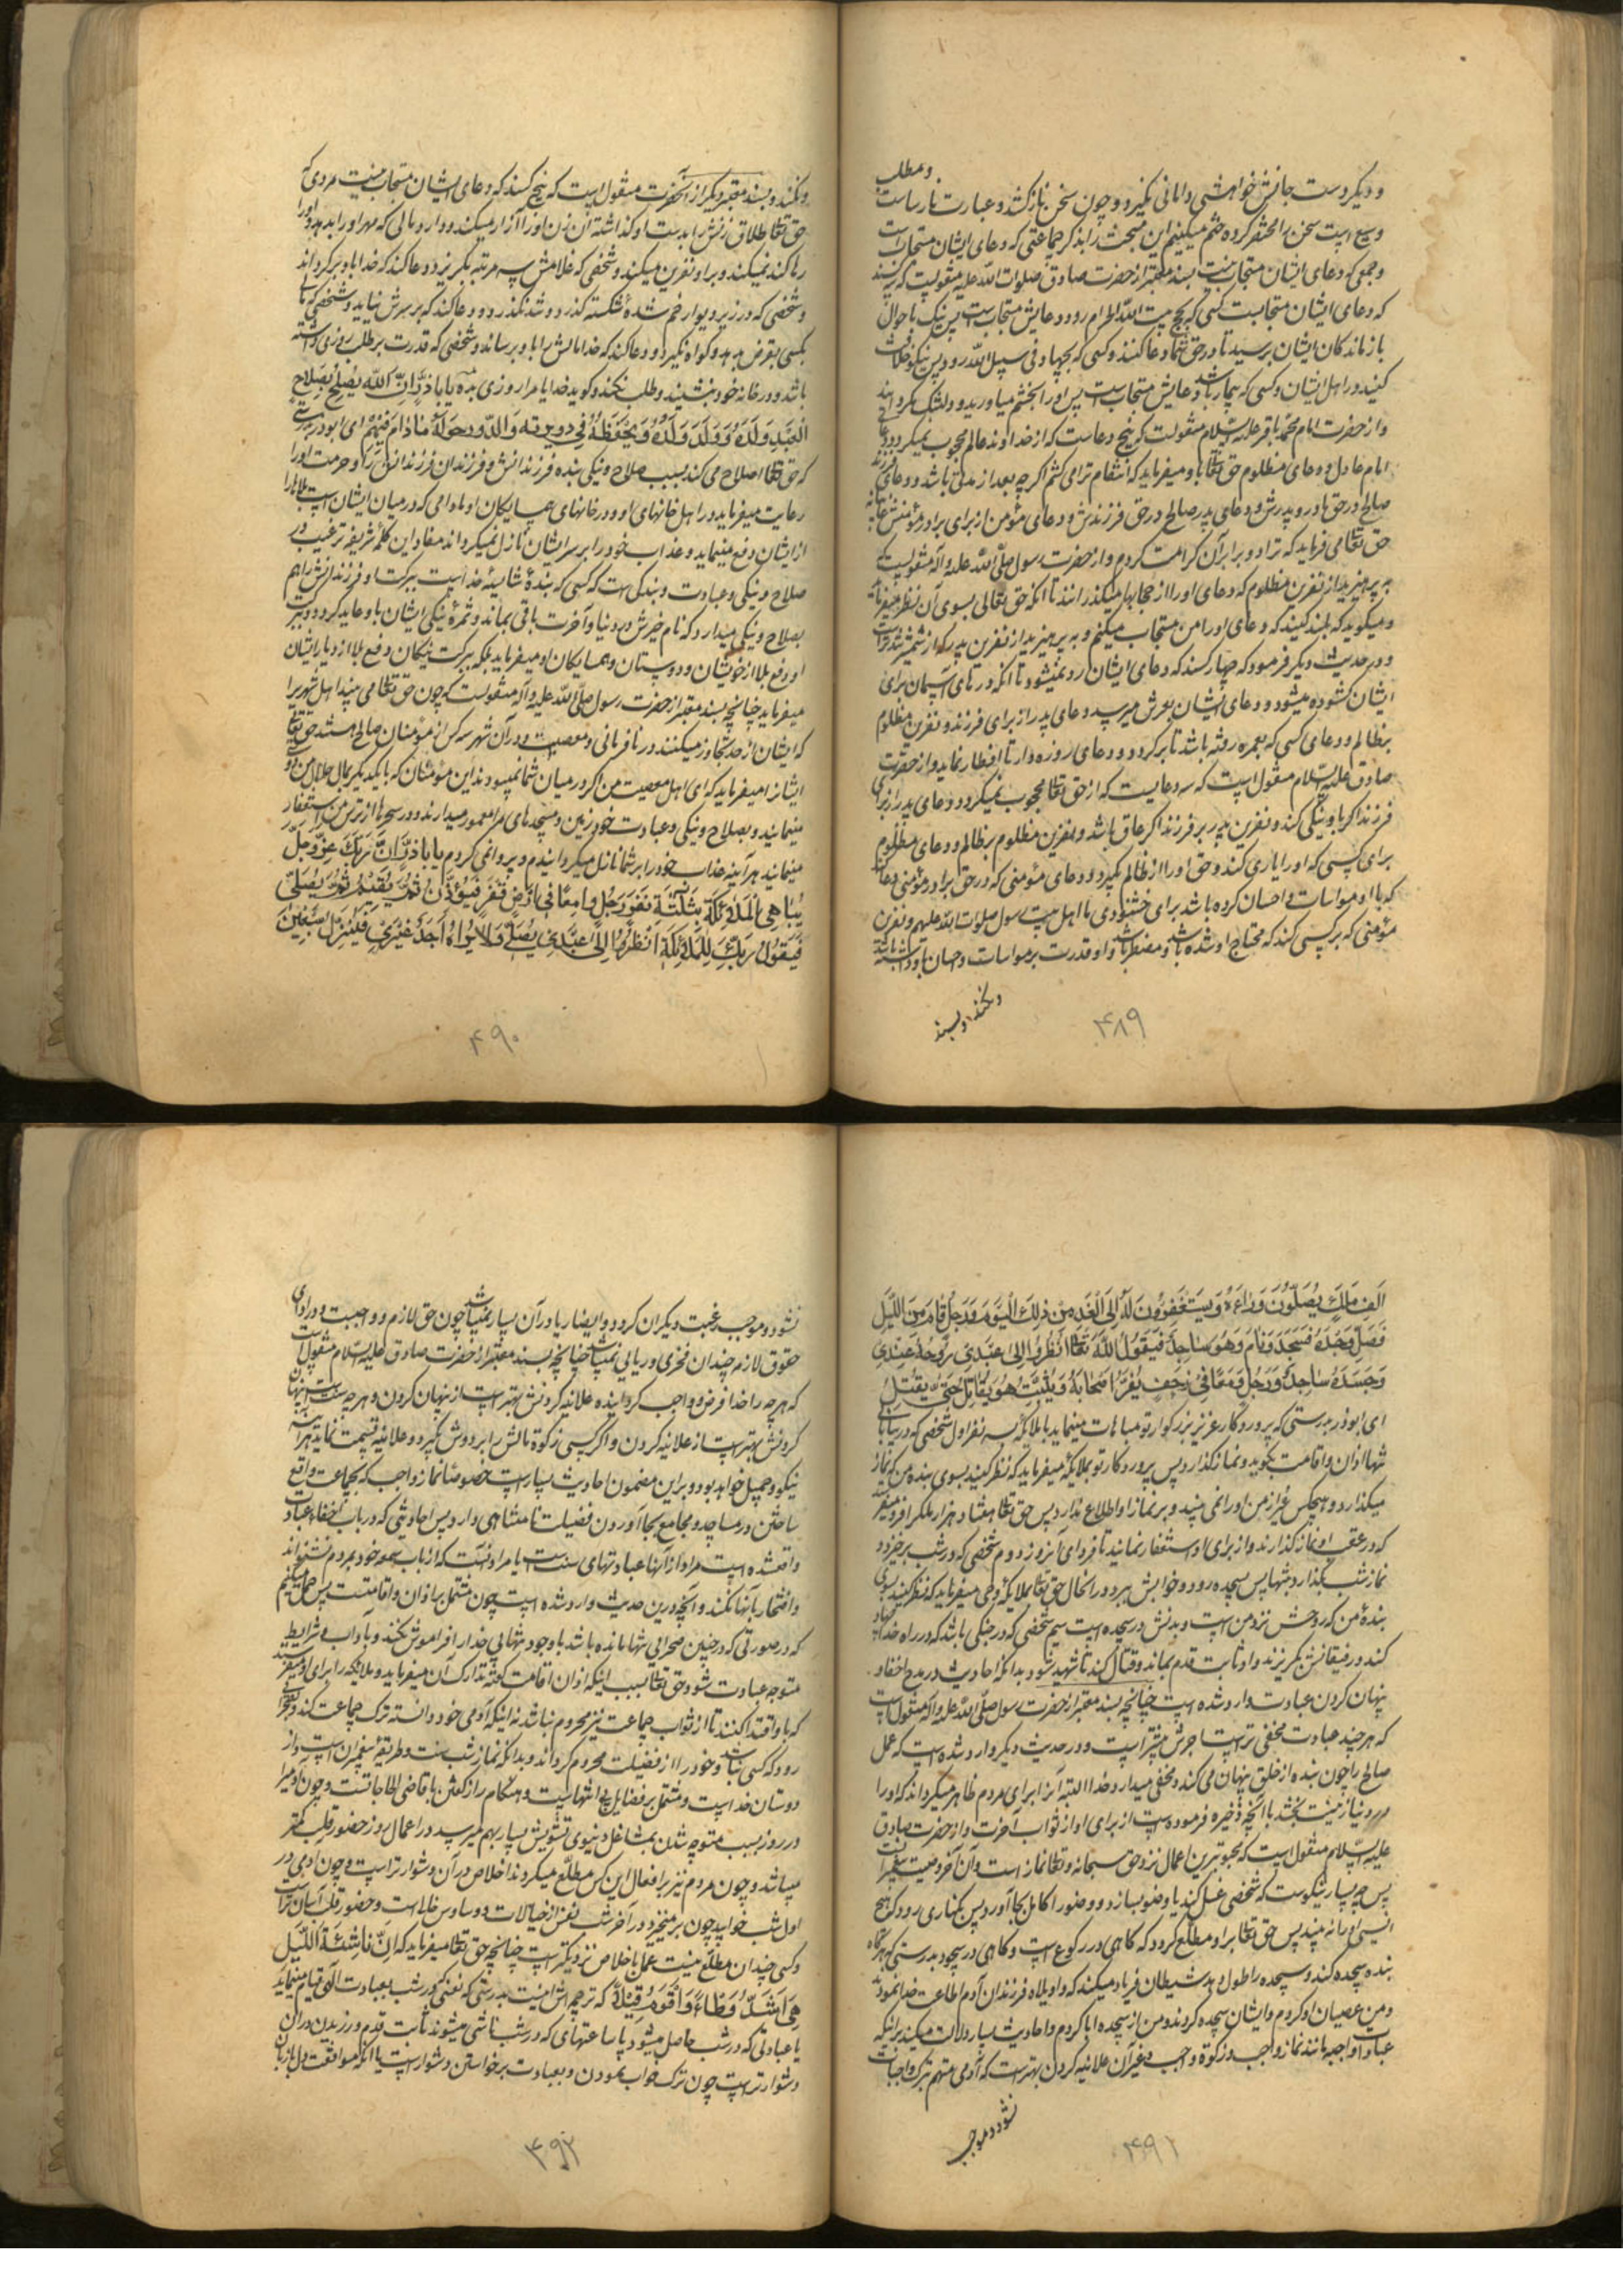 و دیگر دست جانش خواهشی دامانی نگیرد و چون سخن نازک شد و عبارت نارساست و مطلب
وسیع است سخن را مختصر کرده ختم میکنیم این مبحث را بذکر جماعتی که دعای ایشان مستجاب است
و جمعی که دعای ایشان مستجاب نیست بسند معتبر از حضرت صادق صلوات الله علیه منقولست که سه کسند
که دعای ایشان مستجابست کسی که بحج بیت الله الحرام رود دعایش مستجاب است پس نیک باحوال
بازماندکان ایشان برسید تا در حق شما دعا کنند و کسی که بجهاد فی سبیل الله رود پس نیکو خلافت
کنید در اهل ایشان و کسی که بیمار باشد دعایش مستجاب است پس او را بخشم میاورید و دلتنک مکردانید
و از حضرت امام محمد باقر علیه السلام منقولست که پنج دعاست که از خداوند عالم محجوب نمیکردد دعای
امام عادل و دعای مظلوم حق تعالی باو میفرماید که انتقام ترا می کشم اکر چه بعد از مدتی باشد و دعای فرزند
صالح در حق مادر و پدرش و دعای پدر صالح در حق فرزندش و دعای مؤمن از برای برادر مؤمنش غایبانه
حق تعالی می فرماید که ترا دو برابر آن کرامت کردم و از حضرت رسول صلی الله علیه و آله منقولست که
به پرهیزید از نفرین مظلوم که دعای او را از حجابها میکذرانند تا آنکه حق تعالی بسوی آن نظر میفرماید
و میکوید که بلند کنید که دعای او را من مستجاب میکنم و به پرهیزید از نفرین پدر که از شمشیر تندتر است
و در حدیث دیکر فرمود که چهار کسند که دعای ایشان رد نمیشود تا آنکه درهای آسمان برای
ایشان کشوده میشود و دعای ایشان بعرش میرسد دعای پدر از برای فرزند و نفرین مظلوم
بر ظالم و دعای کسی که بعمره رفته باشد تا برکردد و دعای روزه دار تا افطار نماید و از حضرت
صادق علیه السلام منقول است که سه دعاست که از حق تعالی محجوب نمیکردد دعای پدر از برای
فرزند اکر باو نیکی کند و نفرین پدر بر فرزند اکر عاق باشد و نفرین مظلوم بر ظالم و دعای مظلوم
برای کسی که او را یاری کند و حق او را از ظالم بکیرد و دعای مؤمنی که در حق برادر مؤمنی دعا کند
که با او مواسات و احسان کرده باشد برای خشنودی ما اهل بیت رسول صلوات الله علیهم و نفرین
مؤمنی که بر کسی کند که محتاج او شده باشد و مضطر باشد و او قدرت بر مواسات و احسان باو داشته باشد
و نکند و بسند
۴۸۹
و نکند و بسند معتبر دیکر از آنحضرت منقول است که پنج کسند که دعای ایشان مستجاب نیست مردی که
حق تعالی طلاق زنش را بدست او کذاشته آن زن او را آزار میکند و دارد مالی که مهر او را بدهد و او را
رها کند نمیکند و بر او نفرین میکند و شخصی که غلامش سه مرتبه بکریزد و دعا کند که خدا باو برکرداند
و شخصی که در زیر دیوار خم شدهٔ شکسته کذرد و تند نکذرد و دعا کند که بر سرش نیاید و شخصی که مالی
بکسی بقرض بدهد و کواه نکیرد و دعا کند که خدا مالش را باو برساند و شخصی که قدرت بر طلب روزی داشته
باشد و در خانهٔ خود بنشیند و طلب نکند و کوید خدایا مرا روزی بده یا باذر ان الله یصلح بصلاح
العبد ولده و ولد ولده و یحفظه فی دویرته و الدور حوله ما دام فیهم ای ابوذر بدرستی
که حق تعالی اصلاح می کند بسبب صلاح و نیکی بنده فرزندانش و فرزندان فرزندانش را و حرمت او را
رعایت میفرماید در اهل خانهای او و در خانهای همسایکان او مادامی که در میان ایشان است بلاها را
از ایشان دفع مینماید و عذاب خود را بر سر ایشان نازل نمیکرداند مفاد این کلمهٔ شریفه ترغیب در
صلاح و نیکی و عبادت و بندکی است که کسی که بندهٔ شایستهٔ خداست ببرکت او فرزندانش را هم
بصلاح و نیکی میدارد که نام خیرش در دنیا و آخرت باقی بماند و ثمرهٔ نیکی ایشان باو عاید کردد و ببرکت
او دفع بلا از خویشان و دوستان و همسایکان او میفرماید بلکه ببرکت نیکان دفع بلا از دیار ایشان
میفرماید چنانچه بسند معتبر از حضرت رسول صلی الله علیه و آله منقولست که چون حق تعالی می بیند اهل شهری را
که ایشان از حد تجاوز میکنند در نافرمانی و معصیت و در آن شهر سه کس از مؤمنان صالح هستند حق تعالی
ایشان را میفرماید که ای اهل معصیت من اکر در میان شما نمیبودند این مؤمنان که با یکدیکر بمال حلال من دوستی
مینمایند و بصلاح و نیکی و عبادت خود زمین و مسجدهای مرا معمور میدارند و در سحرها از ترس من استغفار
مینمایند هر آینه عذاب خود را بر شما نازل میکردانیدم و پروا نمی کردم یا باذر ان ربک عز و جل
یباهی الملائکة بثلثة نفر رجل یصبح فی ارض قفر فیؤذن ثم یقیم ثم یصلی
فیقول ربک للملائکة انظروا الی عبدی یصلی و لا یراه احد غیری فینزل سبعین
۴۹۰
الف ملک یصلون وراءه و یستغفرون له الی الغد من ذلک الیوم و رجل قام من اللیل
فصلی وحده فسجد و نام و هو ساجد فیقول الله تعالی انظروا الی عبدی روحه عندی
و جسده ساجد و رجل فی زحف یفر اصحابه و یثبت هو یقاتل حتی یقتل
ای ابوذر بدرستی که پروردکار عزیز بزرکوار تو مباهات مینماید با ملائکه بسه نفر اول شخصی که در بیابان
تنها اذان و اقامت بکوید و نماز کذارد پس پروردکار تو بملائکه میفرماید که نظر کنید بسوی بنده من که نماز
میکذارد و هیچکس غیر از من او را نمی بیند و بر نماز او اطلاع ندارد پس حق تعالی هفتاد هزار ملک را فرو میفرستد
که در عقب او نماز کذارند و از برای او استغفار نمایند تا فردای آنروز دوم شخصی که در شب برخیزد و
نماز شب بکذارد بتنهایی پس بسجده رود و خوابش ببرد در آنحال حق تعالی بملائکه وحی میفرماید که نظر کنید بسوی
بندهٔ من که روحش نزد من است و بدنش در سجده است سیم شخصی که در جنکی باشد که در راه خدا جهاد
کند و رفیقانش بکریزند و او ثابت قدم بماند و قتال کند تا شهید شود بدانکه احادیث در مدح اخفا و
پنهان کردن عبادت وارد شده است چنانچه بسند معتبر از حضرت رسول صلی الله علیه و آله منقول است
که هر چند عبادت مخفی تر است اجرش بیشتر است و در حدیث دیکر وارد شده است که عمل
صالح را چون بنده از خلق پنهان می کند و مخفی میدارد خدا البته آنرا برای مردم ظاهر میکرداند که او را
در دنیا زینت بخشد با آنچه ذخیره فرموده است از برای او از ثواب آخرت و از حضرت صادق
علیه السلام منقول است که محبوبترین اعمال نزد حق سبحانه و تعالی نماز است و آن آخر وصیت پیغمبرانست
پس چه بسیار نیکوست که شخصی غسل کند یا وضو بسازد و وضو را کامل بجا آورد پس بکناری رود که هیچ
انیسی او را نه بیند پس حق تعالی بر او مطلع کردد که کاهی در رکوع است و کاهی در سجود بدرستی که هرکاه
بنده سجده کند و سجده را طول دهد شیطان فریاد میکند که واویلاه فرزندان آدم اطاعت خدا نمودند
و من عصیان او کردم و ایشان سجده کردند و من از سجده ابا کردم و احادیث بسیار دلالت میکند بر آنکه
عبادات واجبه مانند نماز واجب و زکوة واجب و غیر آن علانیه کردن بهتر است که آدمی متهم بترک واجبات
نشود و موجب
۴۹۱
نشود و موجب رغبت دیکران کردد و ایضا ریا در آن بسیار نمیباشد چون حق لازم و واجبست و در ادای
حقوق لازم چندان فخری و ریایی نمیباشد چنانچه بسند معتبر از حضرت صادق علیه السلام منقول است
که هر چه را خدا فرض و واجب کردانیده علانیه کردنش بهتر است از پنهان کردن و هر چه سنت است پنهان
کردنش بهتر است از علانیه کردن و اکر کسی زکوة مالش را بر دوش بکیرد و علانیه قسمت نماید هر آینه
نیکو و جمیل خواهد بود و بر این مضمون احادیث بسیار است خصوصا نماز واجب که بجماعت واقع
ساختن در مساجد و مجامع بجا آوردن فضیلت نامتناهی دارد پس احادیثی که در باب اخفاء عبادات
واقعشده است مراد از آنها عبادتهای سنت است یا مراد آنست که از باب سمعه خود بمردم نشنواند
و افتخار بآنها نکند و آنچه درین حدیث وارد شده است چون مشتمل بر اذان و اقامتست پس حمل میکنیم
که در صورتی که در چنین صحرایی تنها مانده باشد با وجود تنهایی خدا را فراموش نکند و باداب و شرایط
متوجه عبادت شود حق تعالی بسبب اینکه اذان و اقامت کفته تدارک آن میفرماید و ملائکه را برای او میفرستد
که باو اقتدا کنند تا از ثواب جماعت نیز محروم نباشد نه اینکه آدمی خود دانسته ترک جماعت کند و بصحرا
رود که کسی نباشد و خود را از فضیلت محروم کرداند و بدانکه نماز شب سنت و طریقهٔ پیغمبران است و از
دوستان خداست و مشتمل بر فضایل بی انتهاست و هنکام راز کفتن با قاضی الحاجاتست و چون آدمی را
در روز بسبب متوجه شدن بمشاغل دنیوی تشویش بسیار بهم میرسد در اعمال روز حضور قلب کمتر
میباشد و چون مردم نیز بر افعال این کس مطلع میکردند اخلاص در آن دشوارتر است و چون آدمی در
اول شب خوابید چون برمیخیزد در آخر شب نفس از خیالات و وساوس خالی است و حضور قلب آسانتر است
و کسی چندان مطلع نیست عمل باخلاص نزدیکتر است چنانچه حق تعالی میفرماید که ان ناشئة اللیل
هی اشد وطاء و اقوم قیلا که ترجمه اش اینست بدرستی که نفسی که در شب بعبادت الهی قیام مینماید
یا عبادتی که در شب حاصل میشود یا ساعتهای که در شب ناشی میشوند ثابت قدم ورزیدن در آن
دشوارتر است چون ترک خواب نمودن و بعبادت برخواستن دشوار است یا آنکه موافقت دل با زبان
۴۹۲